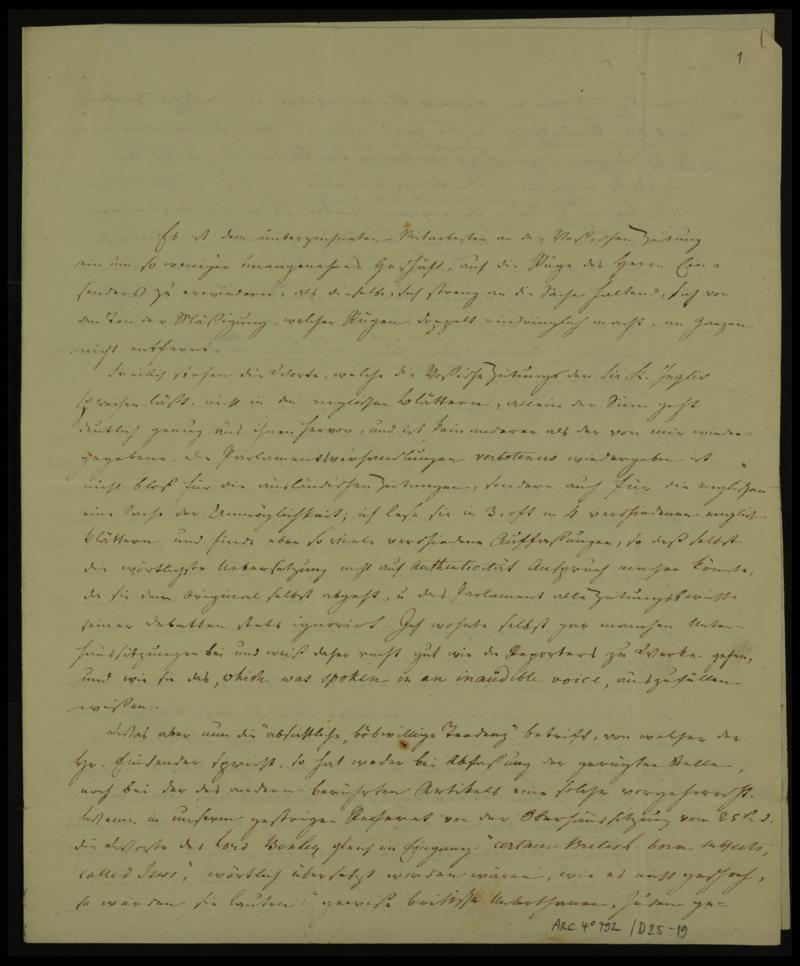 1
Es ist dem unterzeichneten Mitarbeiter an der Vossischen Zeitung
ein um so weniger unangenehmes Geschäft, auf die Rüge des Herrn Ein-
senders zu erwiedern, als dieselbe, sich streng an die Sache haltend, sich von
dem Ton der Mäßigung, welcher Rügen doppelt eindringlich macht, im Ganzen
nicht entfernt.
Freilich stehen die Worte, welche die Vossische Zeitung den Sir R. Inglis
sprechen läßt, nicht in den englischen Blättern, allein der Sinn geht
deutlich genug aus ihnen hervor, und ist kein anderer als der von mir wieder-
gegebene. Die Parlamentsverhandlungen verbotenus wiedergeben ist
nicht bloß für die ausländischen Zeitungen, sondern auch für die englischen
eine Sache der Unmöglichkeit; ich lese sie in 3, oft in 4 verschiedenen englisch
Blättern und finde eben so viele verschiedene Auffassungen, so daß selbst
die wörtlichste Uebersetzung nicht auf Authenticität Anspruch machen könnte,
da sie dem Original selbst abgeht, u. das Parlament alle Zeitungsberichte
seiner Debatten stets ignorirt. Ich wohnte selbst gar manchen Unter-
haussitzungen bei und weiß daher recht gut wie die Reporters zu Werke gehen,
und wie sie das, which was spoken in an inaudible voice, auszufüllen
wissen.
Was aber nun die "absichtliche, böswillige Tendenz" betrift, von welcher der
Hr. Einsender spricht, so hat weder bei Abfassung der gerügten Stelle,
noch bei der des andern berührten Artikels eine solche vorgeherrscht.
Wenn in unserm gestrigen Referat von der Oberhaussitzung vom 25t d.
die Worte des Lord Bexley gleich im Eingang: "certain British born subjects,
called Jews", wörtlich übersetzt worden wären, wie es nicht geschah,
so würden sie lauten: "gewisse britische Unterthanen, Juden ge-
ARC 4° 792 / D25-19